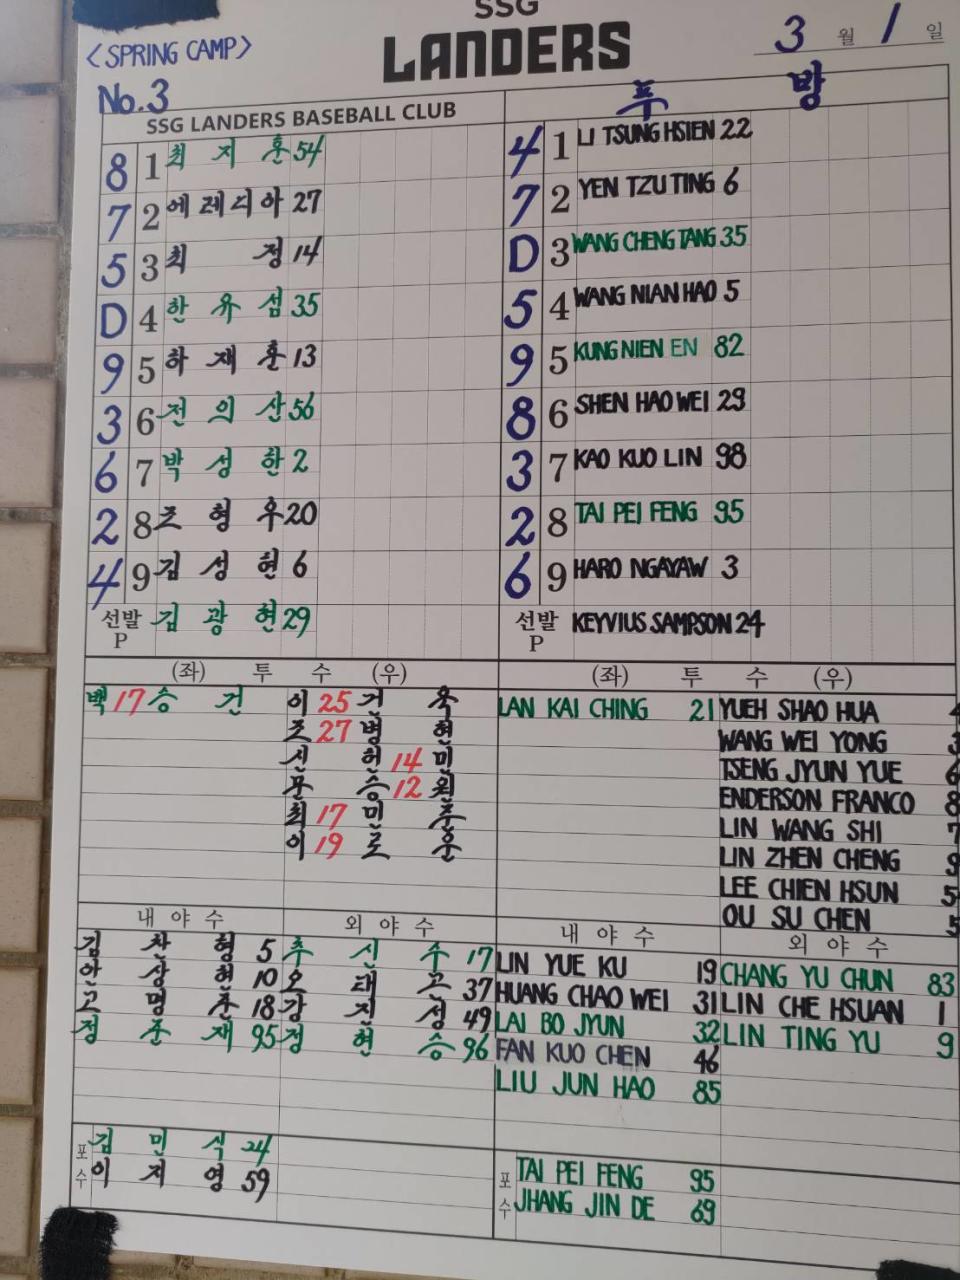 SSG
LANDERS
<SPRING CAMP>
3 월 1 일
No.3
SSG LANDERS BASEBALL CLUB
푸 방
8 1 최 지 훈 54
7 2 에레디아 27
5 3 최 정 14
D 4 한 유 섬 35
9 5 하 재 훈 13
3 6 전 의 산 56
6 7 박 성 한 2
2 8 조 형 우 20
4 9 김 성 현 6
선발 P 김 광 현 29
4 1 LI TSUNG HSIEN 22
7 2 YEN TZU TING 6
D 3 WANG CHENG TANG 35
5 4 WANG NIAN HAO 5
9 5 KUNG NIEN EN 82
8 6 SHEN HAO WEI 29
3 7 KAO KUO LIN 98
2 8 TAI PEI FENG 95
6 9 HARO NGAYAW 3
선발 P KEYVIUS SAMPSON 24
(좌) 투 수 (우)
백 17 승 건
이 25 건 욱
조 27 병 현
신 헌 14 민
문 승 12 원
최 17 민 준
이 19 로 운
(좌) 투 수 (우)
LAN KAI CHING 21
YUEH SHAO HUA
WANG WEI YONG
TSENG JYUN YUE
ENDERSON FRANCO
LIN WANG SHI
LIN ZHEN CHENG
LEE CHIEN HSUN
OU SU CHEN
내 야 수
김 찬 형 5
안 상 현 10
고 명 준 18
정 준 재 95
외 야 수
추 신 수 17
오 태 곤 37
강 진 성 49
정 현 승 96
내 야 수
LIN YUE KU 19
HUANG CHAO WEI 31
LAI BO JYUN 32
FAN KUO CHEN 46
LIU JUN HAO 85
외 야 수
CHANG YU CHUN 83
LIN CHE HSUAN 1
LIN TING YU 9
포 수
김 민 식 24
이 지 영 59
포 수
TAI PEI FENG 95
JHANG JIN DE 69